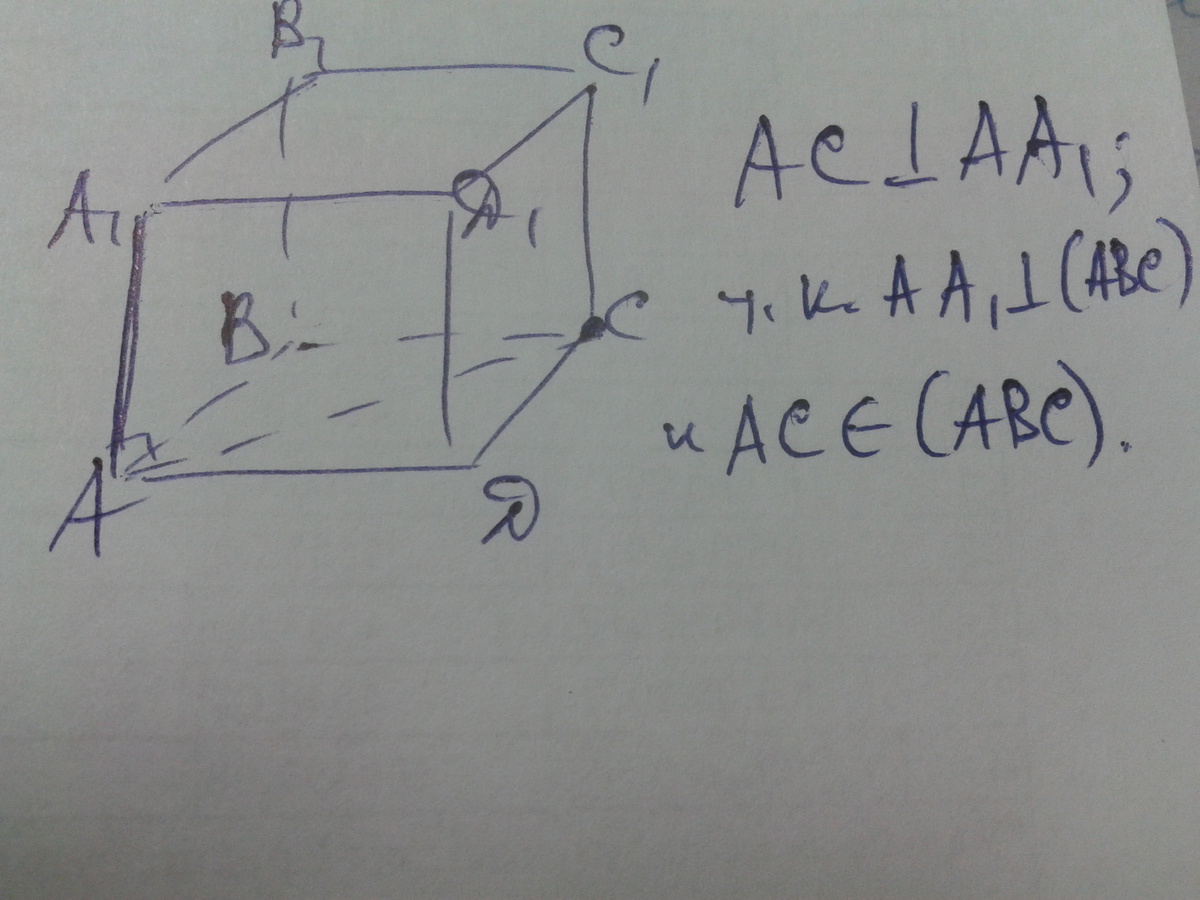 B₁
C₁
A₁
D₁
B
C
A
D
AC ⊥ AA₁;
т.к. AA₁ ⊥ (ABC)
и AC ∈ (ABC).